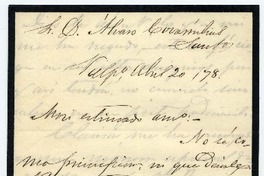 Sr. D. Álvaro Covarrubias
Santo
Valpo Abril 20/78.
Mui estimado amo.—
No sé co
mo principiar; ni que decirle a